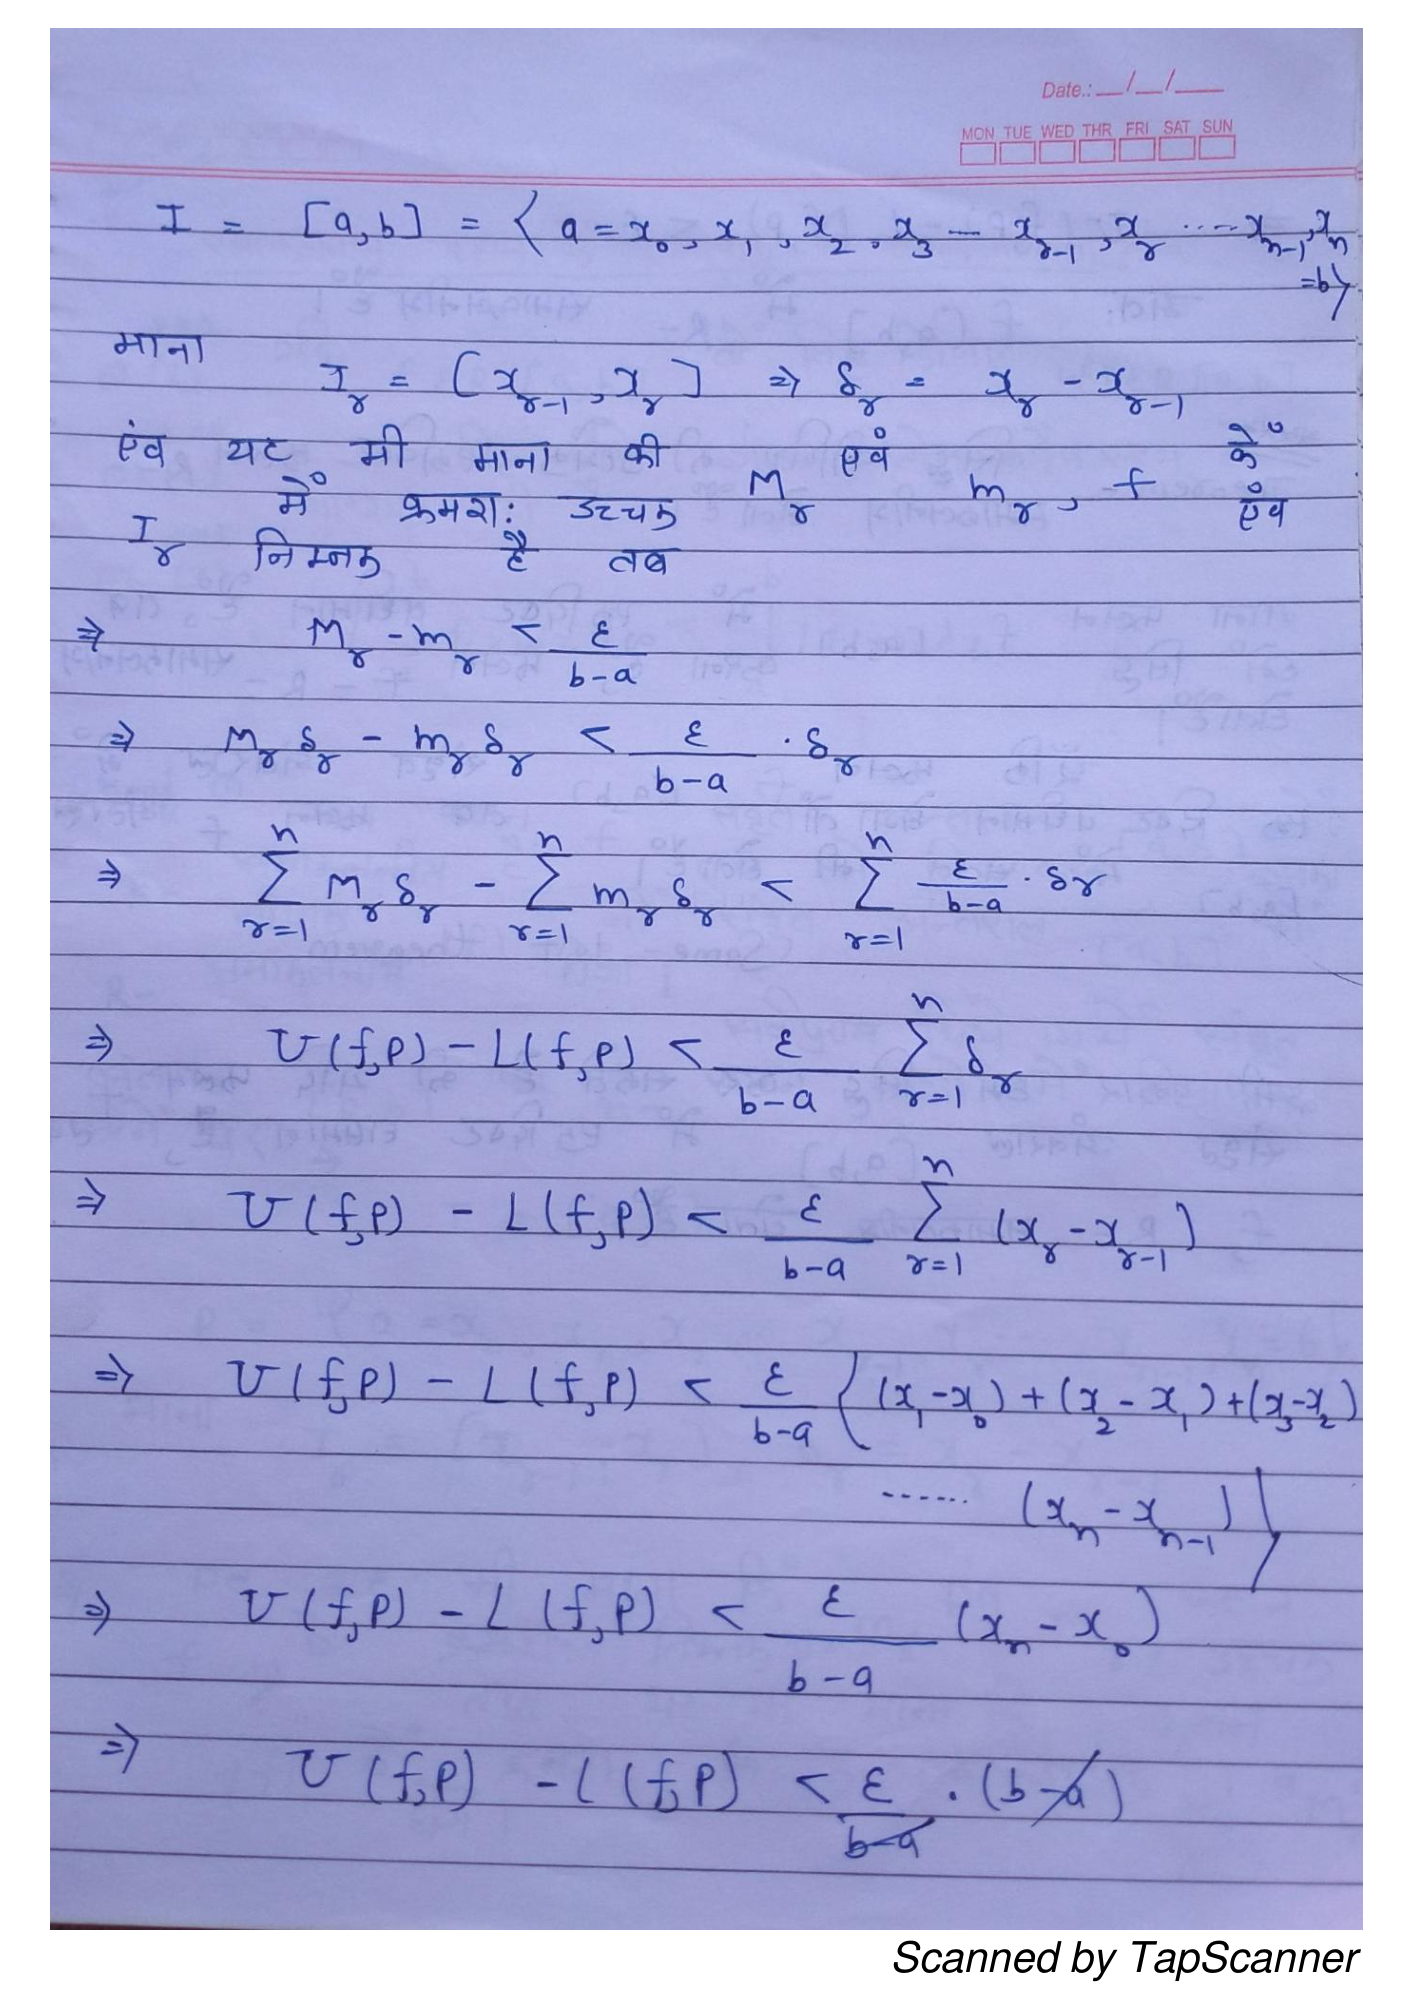 Date.: __/__/___
MON TUE WED THR FRI SAT SUN
I = [a,b] = { a = x₀, x₁, x₂, x₃ --- xᵣ₋₁, xᵣ ..... xₙ₋₁, xₙ
=b}
माना
Iᵣ = [xᵣ₋₁, xᵣ] ⇒ δᵣ = xᵣ - xᵣ₋₁
एंव यह भी माना की Mᵣ एवं mᵣ, f के
Iᵣ में क्रमश: उच्चक एंव
निम्नक है तब
⇒ Mᵣ - mᵣ < ε/(b-a)
⇒ Mᵣ δᵣ - mᵣ δᵣ < ε/(b-a) · δᵣ
⇒ ∑ᵣ₌₁ⁿ Mᵣ δᵣ - ∑ᵣ₌₁ⁿ mᵣ δᵣ < ∑ᵣ₌₁ⁿ ε/(b-a) · δr
⇒ U(f,P) - L(f,P) < ε/(b-a) ∑ᵣ₌₁ⁿ δᵣ
⇒ U(f,P) - L(f,P) < ε/(b-a) ∑ᵣ₌₁ⁿ (xᵣ - xᵣ₋₁)
⇒ U(f,P) - L(f,P) < ε/(b-a) { (x₁-x₀) + (x₂-x₁) + (x₃-x₂)
...... (xₙ - xₙ₋₁) }
⇒ U(f,P) - L(f,P) < ε/(b-a) (xₙ - x₀)
⇒ U(f,P) - L(f,P) < ε/(b-a) · (b-a)
Scanned by TapScanner